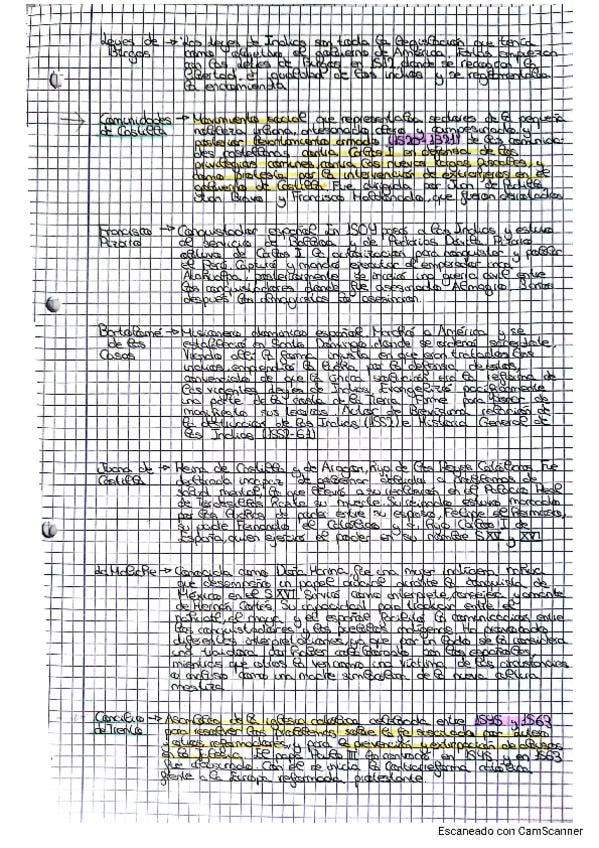 Leyes de → Las Leyes de Indias son toda la legislación que tenía
Burgos como objetivo el gobierno de América. Estas empiezan
con las Leyes de Burgos en 1512 donde se reconocen la
libertad, e igualdad de los indios y se reglamentaba
la encomienda
Comunidades → Movimiento social que representaba sectores de la pequeña
de Castilla nobleza urbana, artesanado, clero y campesinado y
posterior levantamiento armado (1520-1521) de las comunida-
des castellanas contra Carlos I en defensa de los
privilegios comunes contra las nuevas cargas fiscales y
como protesta por la intervención de extranjeros en el
gobierno de Castilla. Fue dirigida por Juan de Padilla,
Juan Bravo y Francisco Maldonado, que fueron derrotados
Francisco → Conquistador español en 1504 pasó a las Indias y estuvo
Pizarro al servicio de Balboa y de Pedrarias Dávila. Pizarro
obtuvo de Carlos I la autorización para conquistar y poblar
el Perú. Capturó y mandó ejecutar al emperador inca
Atahualpa. posteriormente se inició una guerra civil entre
los conquistadores donde fue asesinado Almagro. 3 años
después los almagristas lo asesinan.
Bartolomé → Misionero dominico español. Marchó a América y se
de las estableció en Santo Domingo, donde se ordenó sacerdote.
Casas Viendo allí la forma injusta en que eran tratados los
indios, emprendió la lucha por la defensa de estos,
convencido de que la única solución era la reforma de
las vigentes Leyes de Indias. Evangelizó pacíficamente
una parte de la costa de la Tierra Firme para poner de
manifiesto sus teorías. Autor de Brevísima relación de
la destrucción de las Indias (1552) e Historia General de
las Indias (1552-61)
Juana de → Reina de Castilla y de Aragón, hija de los Reyes Católicos. Fue
Castilla declarada incapaz de gobernar debido a problemas de
salud mental, lo que llevó a su reclusión en el Palacio Real
de Tordesillas hasta su muerte. Su reinado estuvo marcado
por las luchas de poder entre su esposo, Felipe el Hermoso,
su padre Fernando el Católico y su hijo Carlos I de
España, quien ejerció el poder en su nombre S.XV y XVI
La Malinche → Conocida como Doña Marina, fue una mujer indígena nahua
que desempeñó un papel crucial durante la conquista de
México en el S.XVI. Sirvió como intérprete, consejera y amante
de Hernán Cortés. Su capacidad para traducir entre el
náhuatl, el maya y el español facilitó la comunicación entre
los conquistadores y los pueblos indígenas. Ha provocado
diferentes interpretaciones, ya que por un lado se la considera
una traidora por haber colaborado con los españoles
mientras que otros la ven como una víctima de las circunstancias
o incluso como una madre simbólica de la nueva cultura
mestiza
Concilio → Asamblea de la iglesia católica celebrada entre 1545 y 1563
de Trento para resolver los problemas sobre la fe suscitada por Lutero
y otros reformadores, y para la prevención y extirpación de abusos
en la Iglesia. El papa Paulo III lo convocó en 1545 y en 1563
fue clausurado. Con él se inicia la Contrarreforma católica
frente a la Europa reformada protestante.
Escaneado con CamScanner